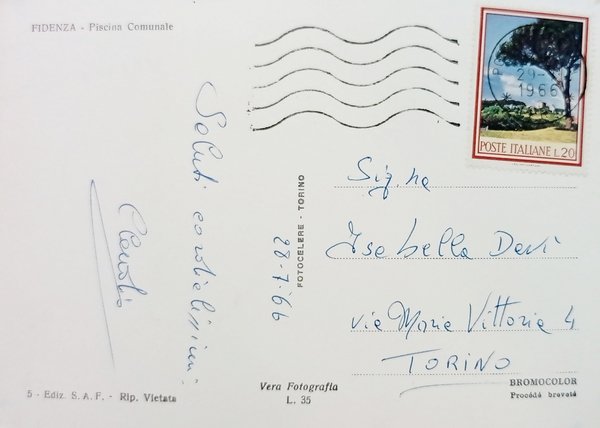 FIDENZA - Piscina Comunale
Saluti cordialissimi
Claudio
5 - Ediz. S. A. F. - Rip. Vietata
FOTOCELERE - TORINO
28-7-66
Vera Fotografia
L. 35
29-
1966
POSTE ITALIANE L.20
Sig.na
Isabella Daví
via Maria Vittoria 4
TORINO
BROMOCOLOR
Procédé breveté